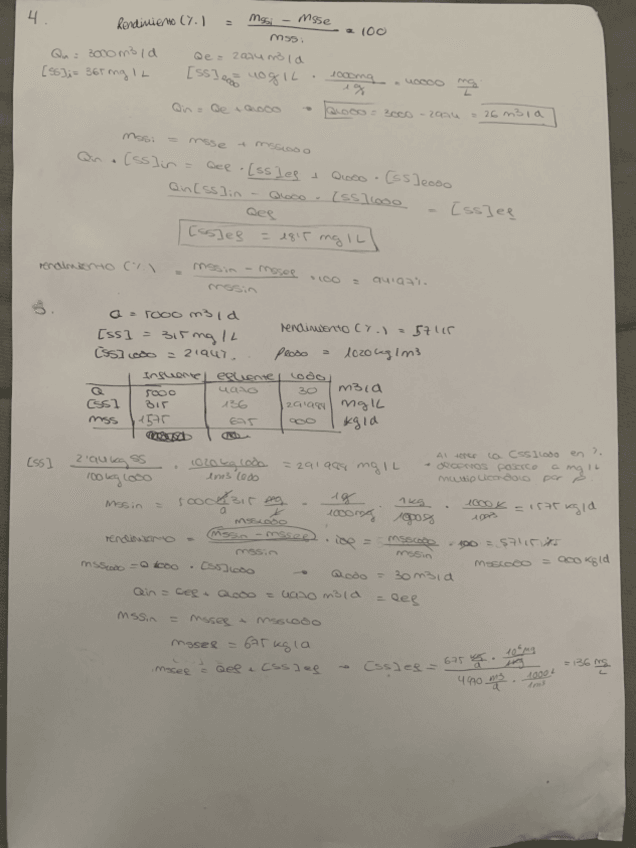 4.
Rendimiento (%) = mssi - msse / mssi · 100
Qin = 3000 m3/d Qe = 2974 m3/d
[SS]i = 365 mg/L [SS]lodo = 40 g/L · 1000mg / 1g = 40000 mg/L
Qin = Qe + Qlodo → Qlodo = 3000 - 2974 = 26 m3/d
mssi = msse + msslodo
Qin · [SS]in = Qef · [SS]ef + Qlodo · [SS]lodo
Qin[SS]in - Qlodo · [SS]lodo / Qef = [SS]ef
[SS]ef = 18'5 mg/L
rendimiento (%) = mssin - mssef / mssin · 100 = 94'97%
5.
Q = 5000 m3/d
[SS] = 315 mg/L rendimiento (%) = 57'15
[SS]lodo = 2'94% ρlodo = 1020 kg/m3
Influente efluente lodo
Q 5000 4970 30 m3/d
[SS] 315 136 29'988 mg/L
mss 1575 675 900 kg/d
[SS] 2'94 kg SS / 100 kg lodo · 1020 kg lodo / 1m3 lodo = 29'988 mg/L
Al tener la [SS]lodo en %
debemos pasarlo a mg/L
multiplicándolo por ρ
mssin = 5000 m3/d · 315 mg/L · 1g / 1000mg · 1kg / 1000g · 1000 L / 1m3 = 1575 kg/d
msslodo
rendimiento = mssin - mssef / mssin · 100 = msslodo / mssin · 100 = 57'15
msslodo = Qlodo · [SS]lodo → Qlodo = 30 m3/d msslodo = 900 kg/d
Qin = Qef + Qlodo = 4970 m3/d = Qef
mssin = mssef + msslodo
mssef = 675 kg/d
mssef = Qef · [SS]ef → [SS]ef = 675 kg/d · 10^6 mg / 1kg / 4970 m3/d · 1000 L / 1m3 = 136 mg/L